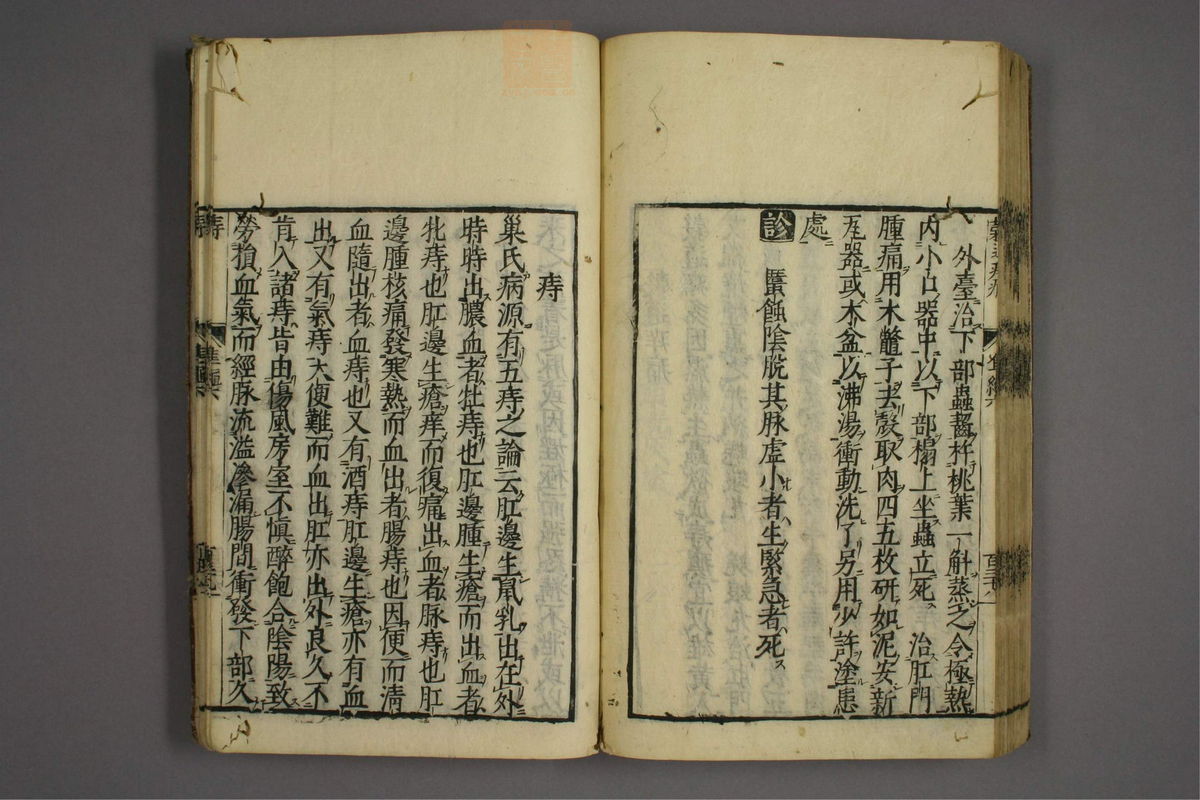 外臺治下部蟲齧杵桃葉一斛蒸之令極熱
內小口器中以下部榻上坐蟲立死 治肛門
腫痛用木鱉子去殼取肉四五枚研如泥安新
瓦器或木盆以沸湯衝動洗了另用少許塗患
處
診 䘌蝕陰脫其脉虛小者生緊急者死
痔
巢氏病源有五痔之論云肛邊生鼠乳出在外
時時出膿血者牡痔也肛邊腫生瘡而出血者
牝痔也肛邊生瘡痒而復痛出血者脉痔也肛
邊腫核痛發寒熱而血出者腸痔也因便而清
血隨出者血痔也又有酒痔肛邊生瘡亦有血
出又有氣痔大便難而血出肛亦出外良久不
肯入諸痔皆由傷風房室不慎醉飽合陰陽致
勞損血氣而經脉流溢滲漏腸間衝發下部久